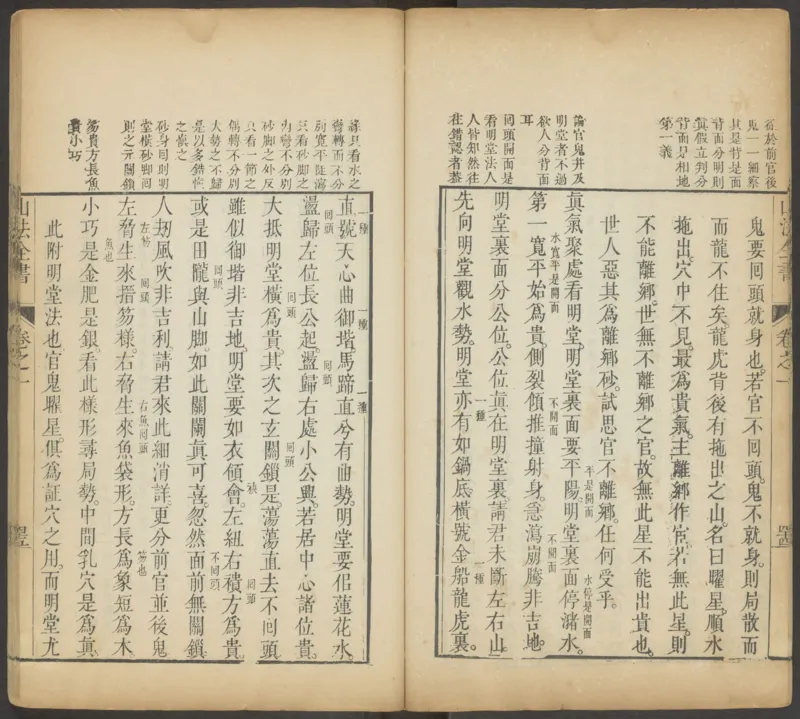 看於前官後
鬼一一細察
其是背是面
背面分明則
真假立判分
背面是相地
第一義
鬼要囘頭就身也。若官不囘頭。鬼不就身。則局散而
而龍不住矣。龍虎背後有拖出之山。名曰曜星。順水
拖出。穴中不見。最為貴氣。主離鄉作官。若無此星。則
不能離鄉。世無不離鄉之官。故無此星不能出貴也。
世人惡其為離鄉砂。試思官不離鄉。任何受乎。
論官鬼并及
明堂者不過
欲人分背面
耳
囘頭開面是
看明堂法人
人皆知然往
往錯認者蓋
真氣聚處看明堂。明堂裏面要平陽。明堂裏面停瀦水。
平是開面
水停是開面
第一寬平始為貴。側裂傾推撞射身。急瀉崩騰非吉地。
水寬平是開面
不開面
不開面
明堂裏面分公位。公位真在明堂裏。請君未斷左右山。
先向明堂觀水勢。明堂亦有如鍋底。橫號金船龍虎裏。
一種
一種
山法全書
卷之一
誤只看水之
彎轉而不分
別寬平陡瀉
只看砂脚之
內彎不分別
砂脚之外反
只看一節之
偶轉不分別
大勢之不歸
是以多錯悞
之悞之
砂身囘則明
堂橫砂脚囘
則之元關鎖
笏貴方長魚
貴小巧
直號天心曲御堦。馬蹄直兮有曲勢。明堂要似蓮花水。
一種
一種
一種
盪歸左位長公起。盪歸右處小公興。若居中心諸位貴。
囘頭
囘頭
大抵明堂橫為貴。其次之玄關鎖是。蕩蕩直去不囘頭。
囘頭
囘頭
雖似御堦非吉地。明堂要如衣領會。左紐右襟方為貴。
囘頭
囘頭
或是田隴與山脚。如此關闌真可喜。忽然面前無關鎖。
不囘頭
人刼風吹非吉利。請君來此細消詳。更分前官並後鬼。
左脅生來搢笏樣。右脅生來魚袋形。方長為象短為木。
左笏
囘頭
右魚囘頭
笏也
小巧是金肥是銀。看此樣形尋局勢。中間乳穴是為真。
魚也
此附明堂法也。官鬼曜星。俱為証穴之用。而明堂尤
山法全書
卷之一